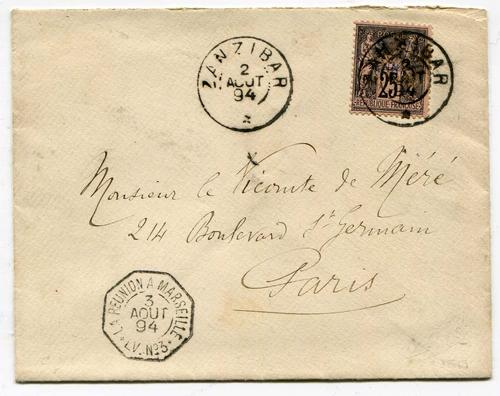 ZANZIBAR
2
AOUT
94
ZANZIBAR
2
AOUT
94
25
REPUBLIQUE FRANÇAISE
Monsieur le Vicomte de Méré
214 Boulevard St Germain
Paris
LA REUNION A MARSEILLE
3
AOUT
94
L.V. No3